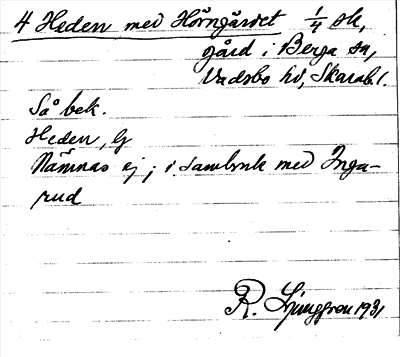 4 Heden med Hörngärdet 1/4 sk,
gård i Berga sn,
Vadsbo hd, Skarab.l.
Så bek.
Heden, G
Nämnas ej; i sambruk med Inga-
rud
R. Ljunggren 1931